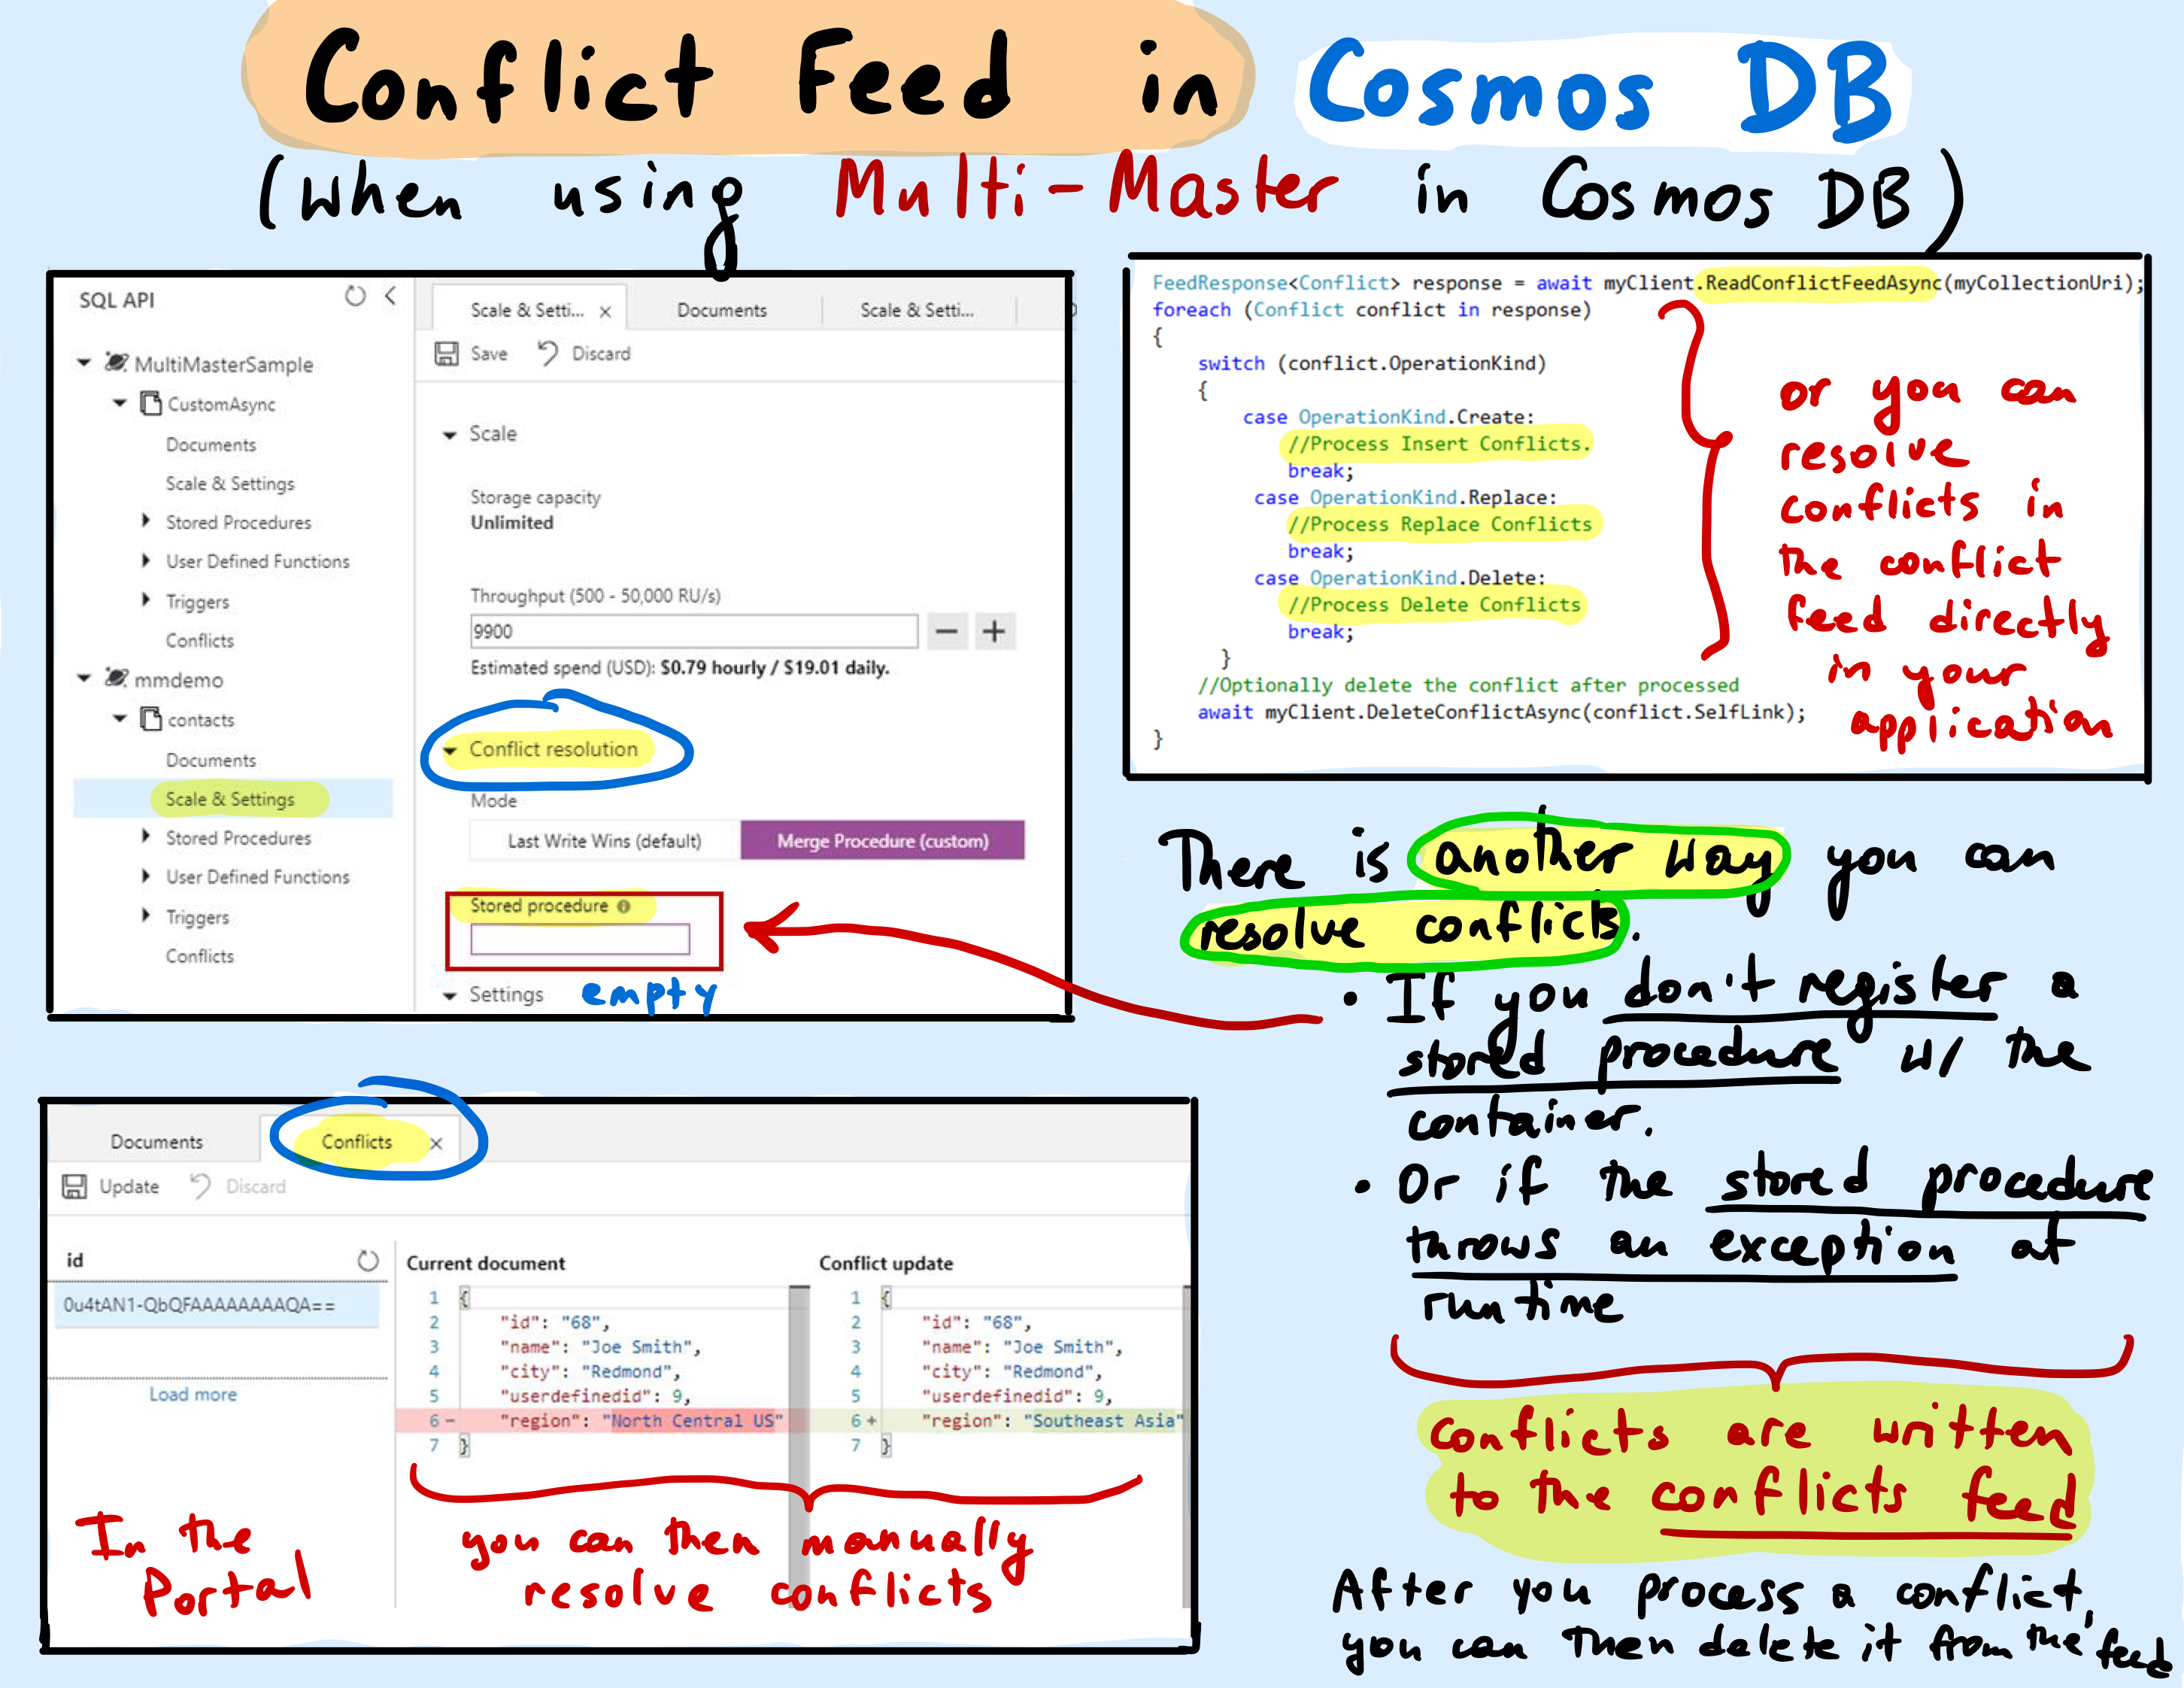 Conflict Feed in Cosmos DB
(when using Multi-Master in Cosmos DB)
SQL API
MultiMasterSample
CustomAsync
Documents
Scale & Settings
Stored Procedures
User Defined Functions
Triggers
Conflicts
mmdemo
contacts
Documents
Scale & Settings
Stored Procedures
User Defined Functions
Triggers
Conflicts
Scale & Setti... × Documents Scale & Setti...
Save Discard
Scale
Storage capacity
Unlimited
Throughput (500 - 50,000 RU/s)
9900
Estimated spend (USD): $0.79 hourly / $19.01 daily.
Conflict resolution
Mode
Last Write Wins (default) Merge Procedure (custom)
Stored procedure
Settings
empty
FeedResponse<Conflict> response = await myClient.ReadConflictFeedAsync(myCollectionUri);
foreach (Conflict conflict in response)
{
switch (conflict.OperationKind)
{
case OperationKind.Create:
//Process Insert Conflicts.
break;
case OperationKind.Replace:
//Process Replace Conflicts
break;
case OperationKind.Delete:
//Process Delete Conflicts
break;
}
//Optionally delete the conflict after processed
await myClient.DeleteConflictAsync(conflict.SelfLink);
}
or you can
resolve
conflicts in
the conflict
feed directly
in your
application
There is another way you can
resolve conflicts.
• If you don't register a
stored procedure w/ the
container.
• Or if the stored procedure
throws an exception at
runtime
conflicts are written
to the conflicts feed
After you process a conflict,
you can then delete it from the feed
Documents Conflicts ×
Update Discard
id
0u4tAN1-QbQFAAAAAAAAQA==
Load more
Current document
1 {
2 "id": "68",
3 "name": "Joe Smith",
4 "city": "Redmond",
5 "userdefinedid": 9,
6 - "region": "North Central US"
7 }
Conflict update
1 {
2 "id": "68",
3 "name": "Joe Smith",
4 "city": "Redmond",
5 "userdefinedid": 9,
6 + "region": "Southeast Asia"
7 }
In the
Portal
you can then manually
resolve conflicts